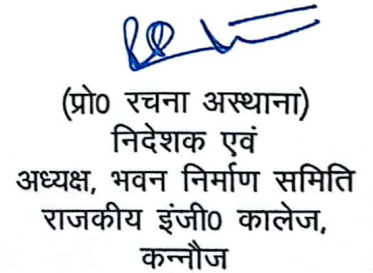 (प्रो0 रचना अस्थाना)
निदेशक एवं
अध्यक्ष, भवन निर्माण समिति
राजकीय इंजी0 कालेज,
कन्नौज